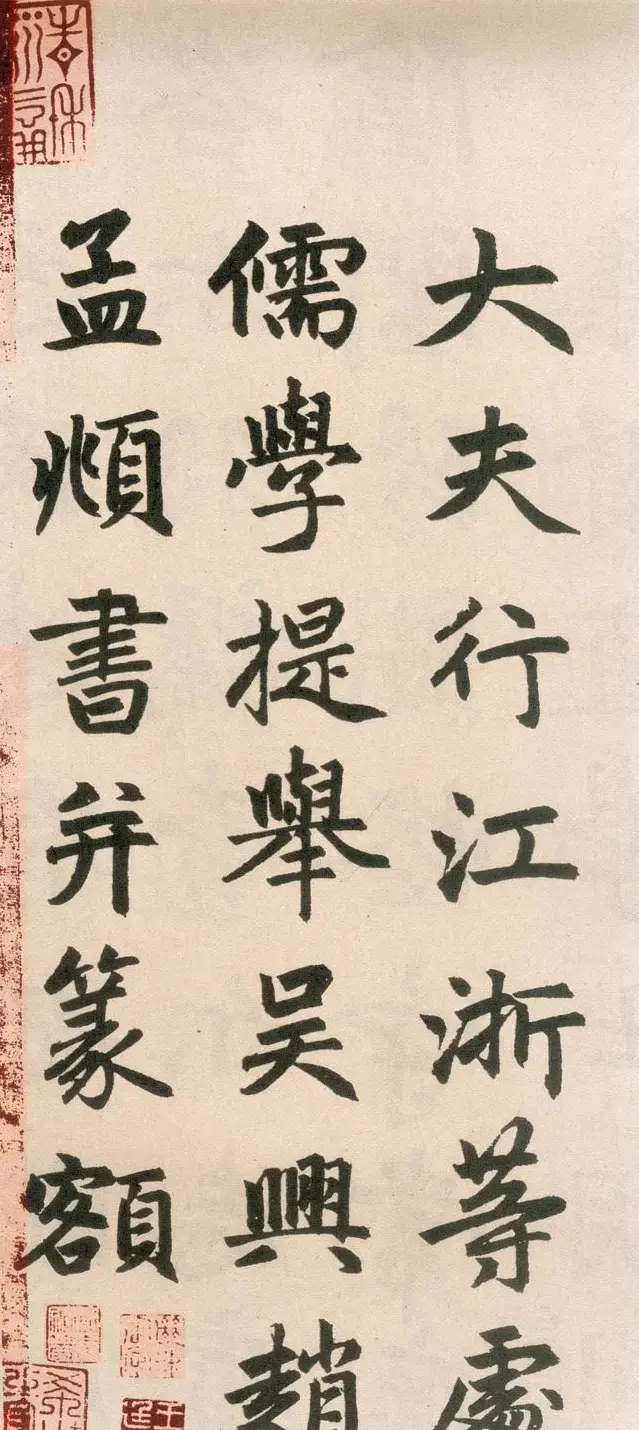 大夫行江浙等處
儒學提舉吴興趙
孟頫書并篆額